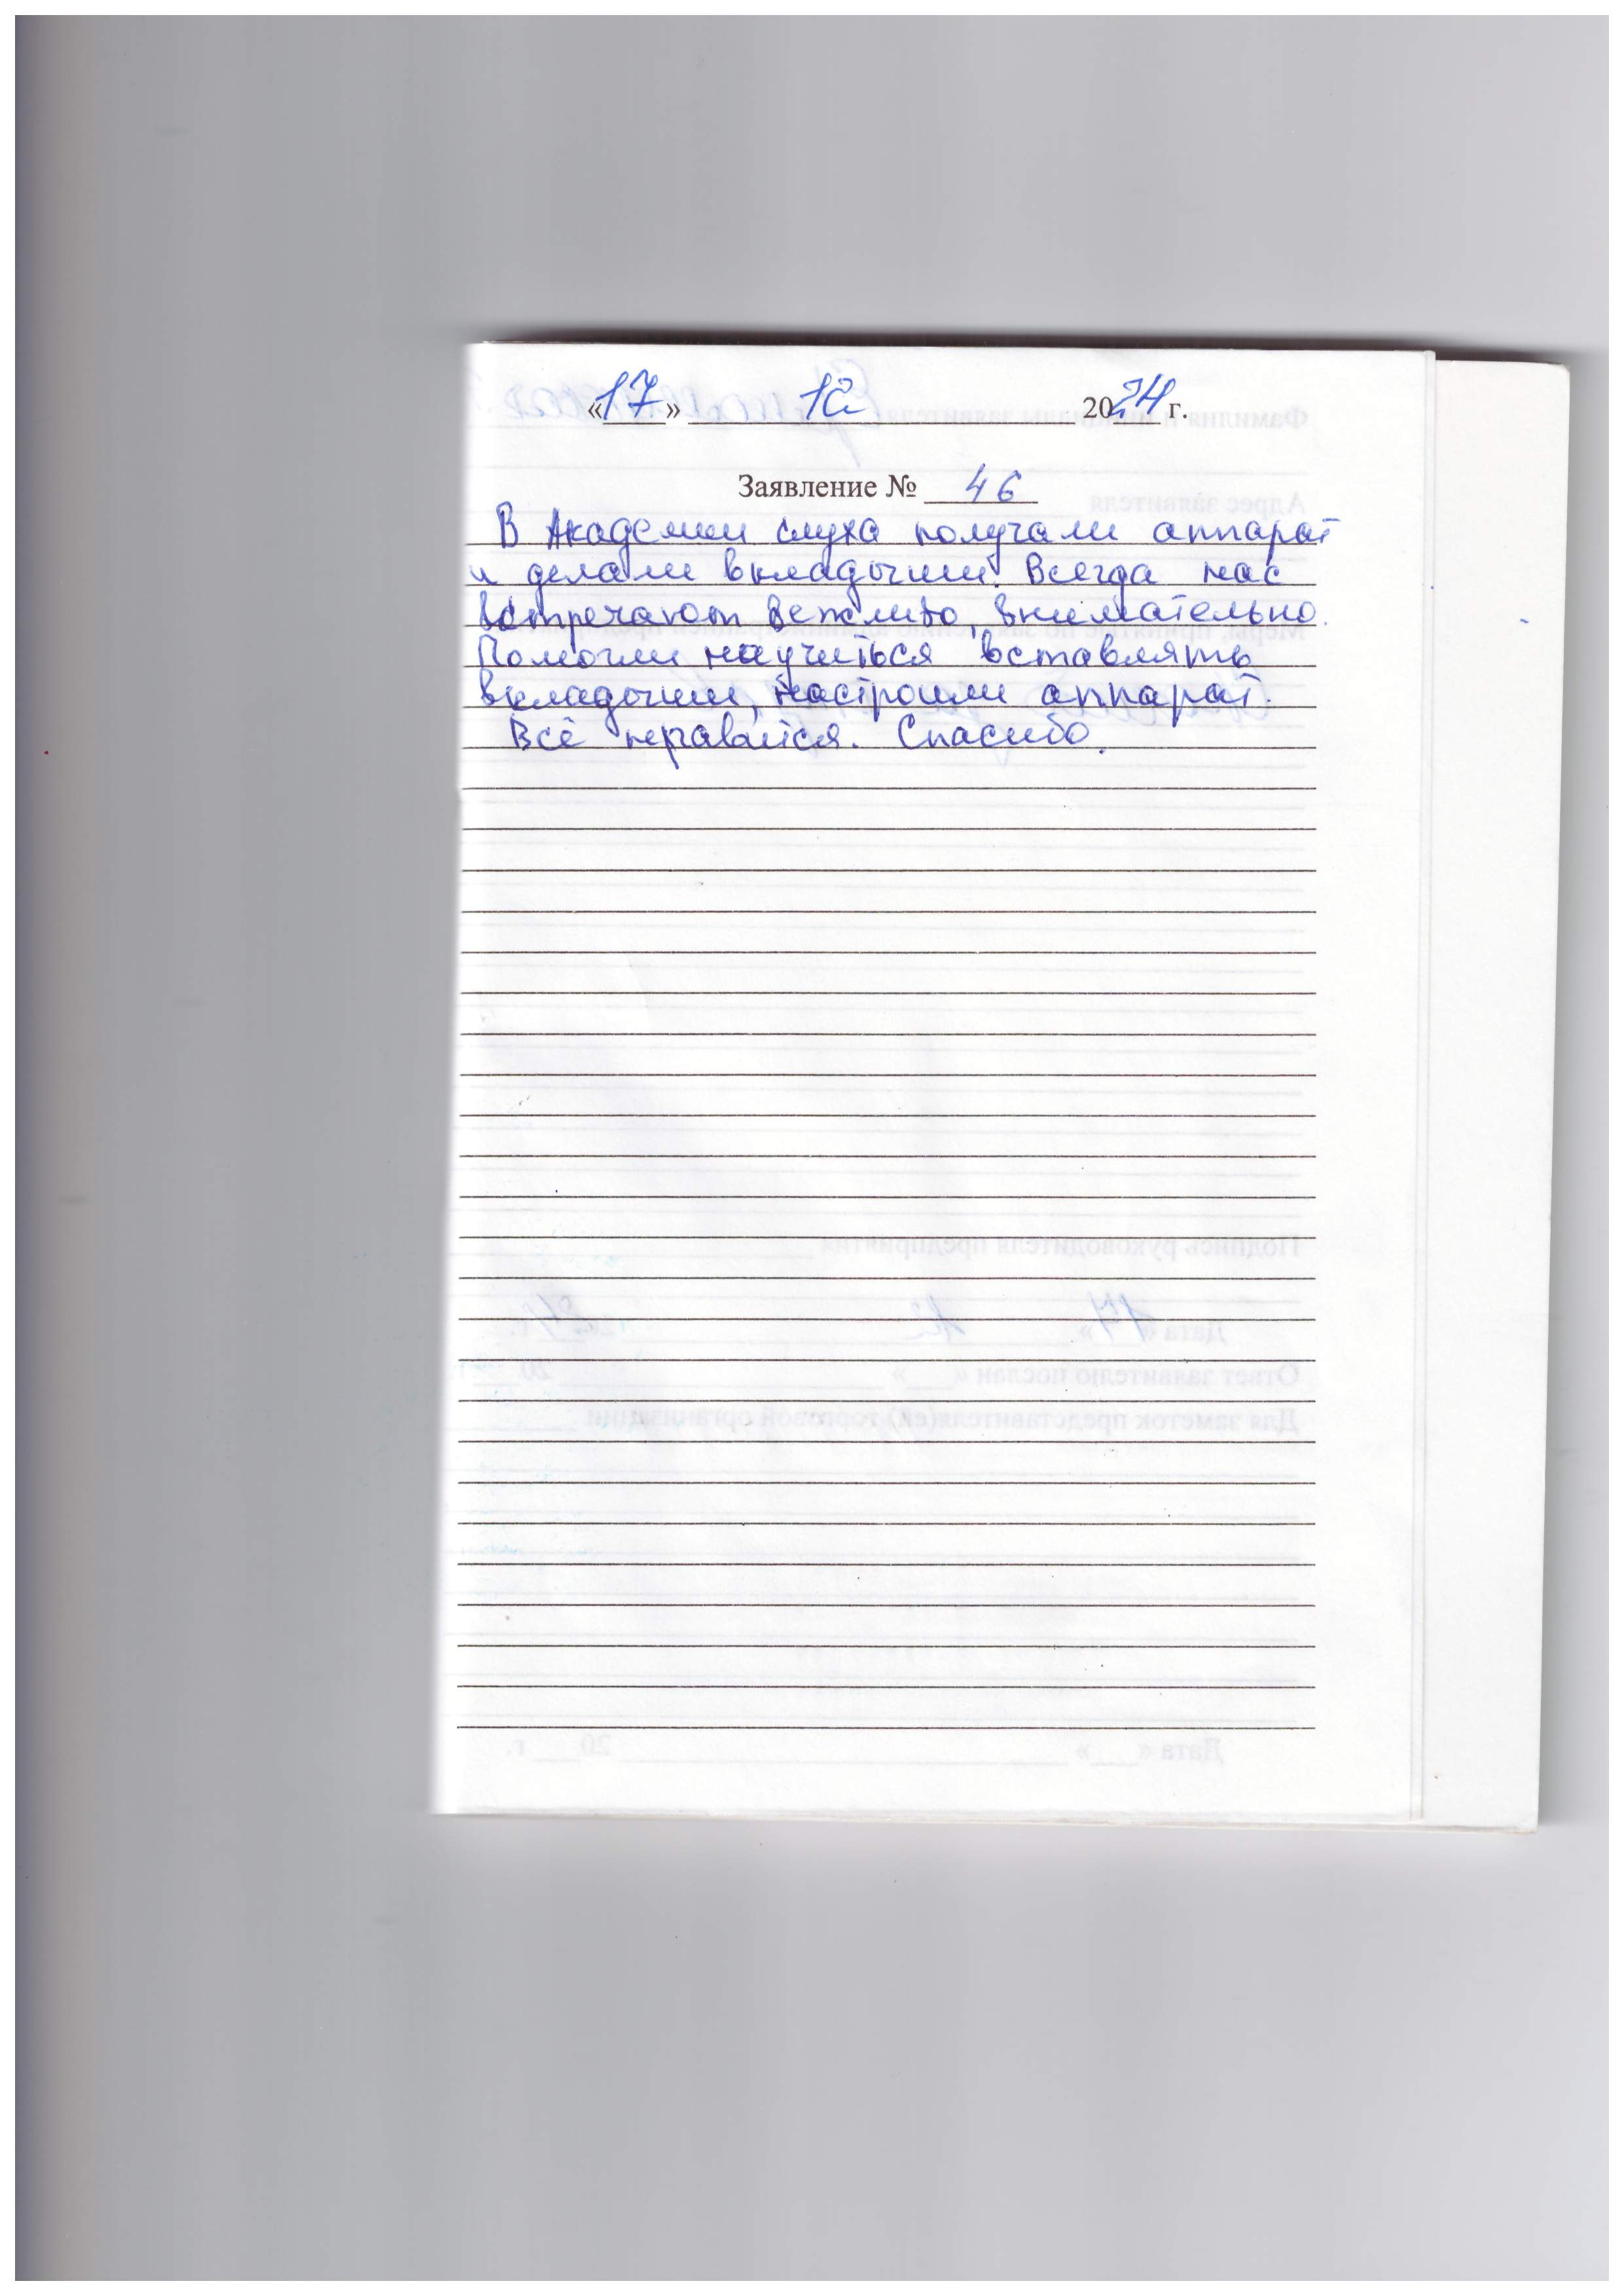 «17» 12 2024 г.
Заявление № 46
В Академии слуха получали аппарат
и делали вкладыши. Всегда нас
встречают вежливо, внимательно.
Помогли научиться вставлять
вкладыши, настроили аппарат.
Всё нравится. Спасибо.